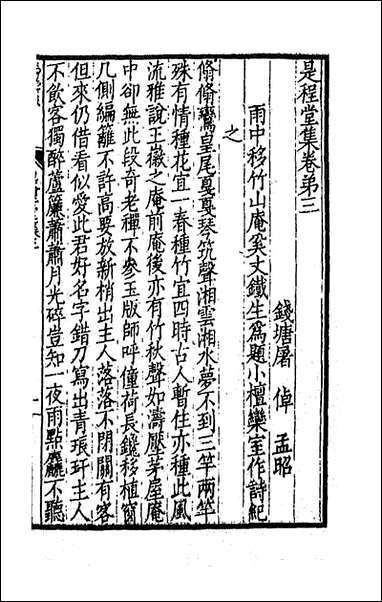 是程堂集卷弟三
錢塘屠倬孟昭
雨中移竹山庵奚丈鐵生為題小檀欒室作詩紀
之
翛翛鸞皇尾戛戛琴筑聲湘雲湘水夢不到三竿兩竿
殊有情種花宜一春種竹宜四時古人暫住亦種此風
流雅說王徽之庵前庵後亦有竹秋聲如濤壓茅屋庵
中卻無此段奇老禪不參玉版師呼僮荷長鑱移植窗
几側編籬不許高要放新梢出主人落落不閉關有客
但來仍借看似愛此君好名字錯刀寫出青琅玕主人
不飲客獨醉蘆簾蕭蕭月光碎豈知一夜雨點麤不聽